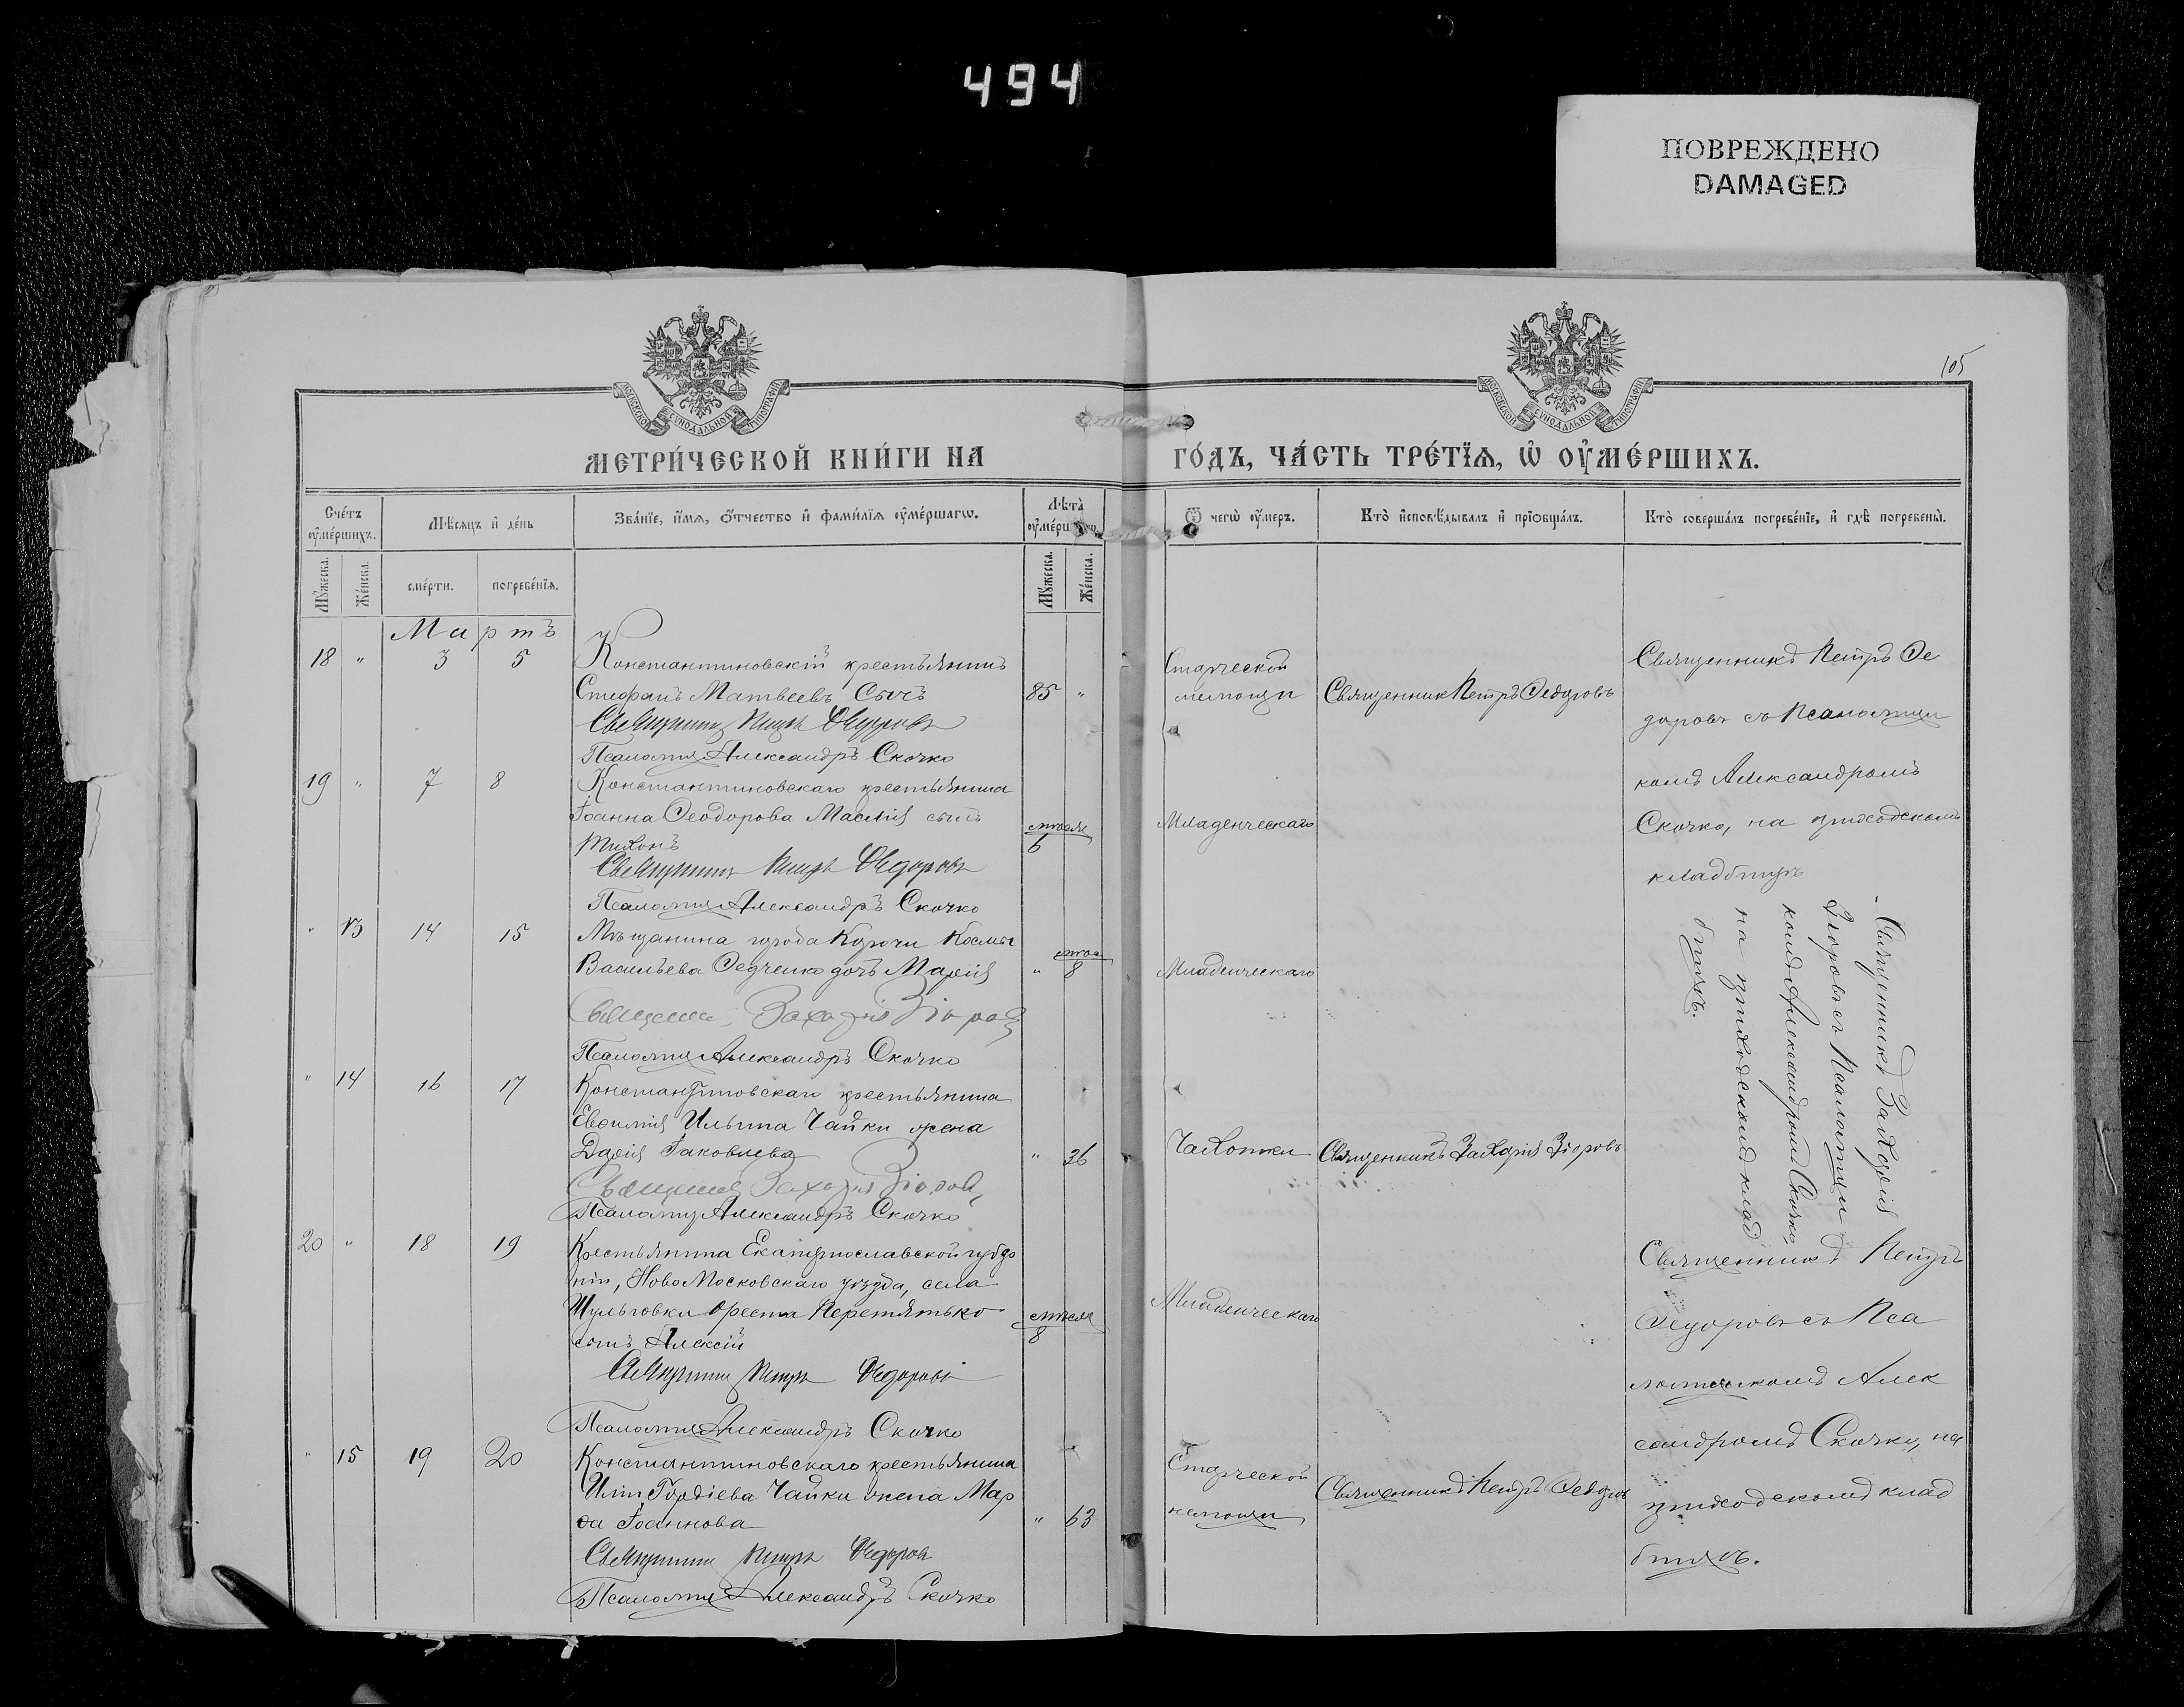 494
ПОВРЕЖДЕНО
DAMAGED
105
МОСКОВСКОЙ СУНОДАЛЬНОЙ ТИПОГРАФІИ
МОСКОВСКОЙ СУНОДАЛЬНОЙ ТИПОГРАФІИ
МЕТРИ́ЧЕСКОЙ КНИ́ГИ НА
ГО́ДЪ, ЧА́СТЬ ТРЕ́ТЇѦ, Ѡ҆ ОУ҆МЕ́РШИХЪ.
Сче́тъ оу҆ме́ршихъ.
Мѣ́сѧцъ и҆ де́нь
Зва́нїе, и҆́мѧ, ѻ҆́тчество и҆ фами́лїѧ оу҆ме́ршагѡ.
Лѣ́та оу҆ме́рш
Ѿ чегѡ̀ оу҆́меръ.
Кто̀ и҆сповѣ́дывалъ и҆ прїѡбща́лъ.
Кто̀ соверша́лъ погребе́нїе, и҆ гдѣ̀ погребены̀.
Мꙋ́жеска.
Же́нска.
сме́рти.
погребе́нїѧ.
Мꙋ́жеска.
Же́нска.
Мартъ
18 " 3 5 Константиновскій крестьянинъ
Стефанъ Матвеевъ Сычъ 85 "
Священникъ Петръ Федоровъ
Псаломщ Александръ Скочко
Старческой
немощи
Священник Петръ Федоровъ
Священникъ Петръ Фе
доровъ съ Псаломщи
комъ Александромъ
Скочко, на приходскомъ
кладбищѣ
19 " 7 8 Константиновскаго крестьянина
Іоанна Феодорова Маслія сынъ
Тихонъ
6
Священникъ Петръ Федоровъ
Псаломщ Александръ Скочко
Младенческаго
" 13 14 15 Мѣщанина города Корочи Космы
Васильева Федченко дочь Марія " 8
Священни Захарія Зіоровъ
Псаломщ Александръ Скочко
Младенческаго
Священникъ Захарія
Зіоровъ съ Псаломщи
комъ Александромъ Скочко,
на приходскомъ клад
бищѣ.
" 14 16 17 Константиновскаго крестьянина
Евфимія Ильина Чайки жена
Дарія Іаковлева " 36
Священни Захарія Зіоров
Псаломщ Александръ Скочко
Чахотки
Священникъ Захарія Зіоровъ
20 " 18 19 Крестьянина Екатеринославской губер
ніи, НовоМосковскаго уѣзда, села
Шульговки Ореста Перетятько
сынъ Алексій
8
Священник Петръ Федоровъ
Псаломщ Александръ Скочко
Младенческаго
Священникъ Петръ
Федоровъ съ Пса
ломщикомъ Алек
сандромъ Скочко, на
приходскомъ клад
бищѣ.
" 15 19 20 Константиновскаго крестьянина
Иліи Гордіева Чайки жена Мар
фа Іоаннова " 63
Священник Петръ Федоров
Псаломщ Александръ Скочко
Старческой
немощи
Священникъ Петръ Федоров